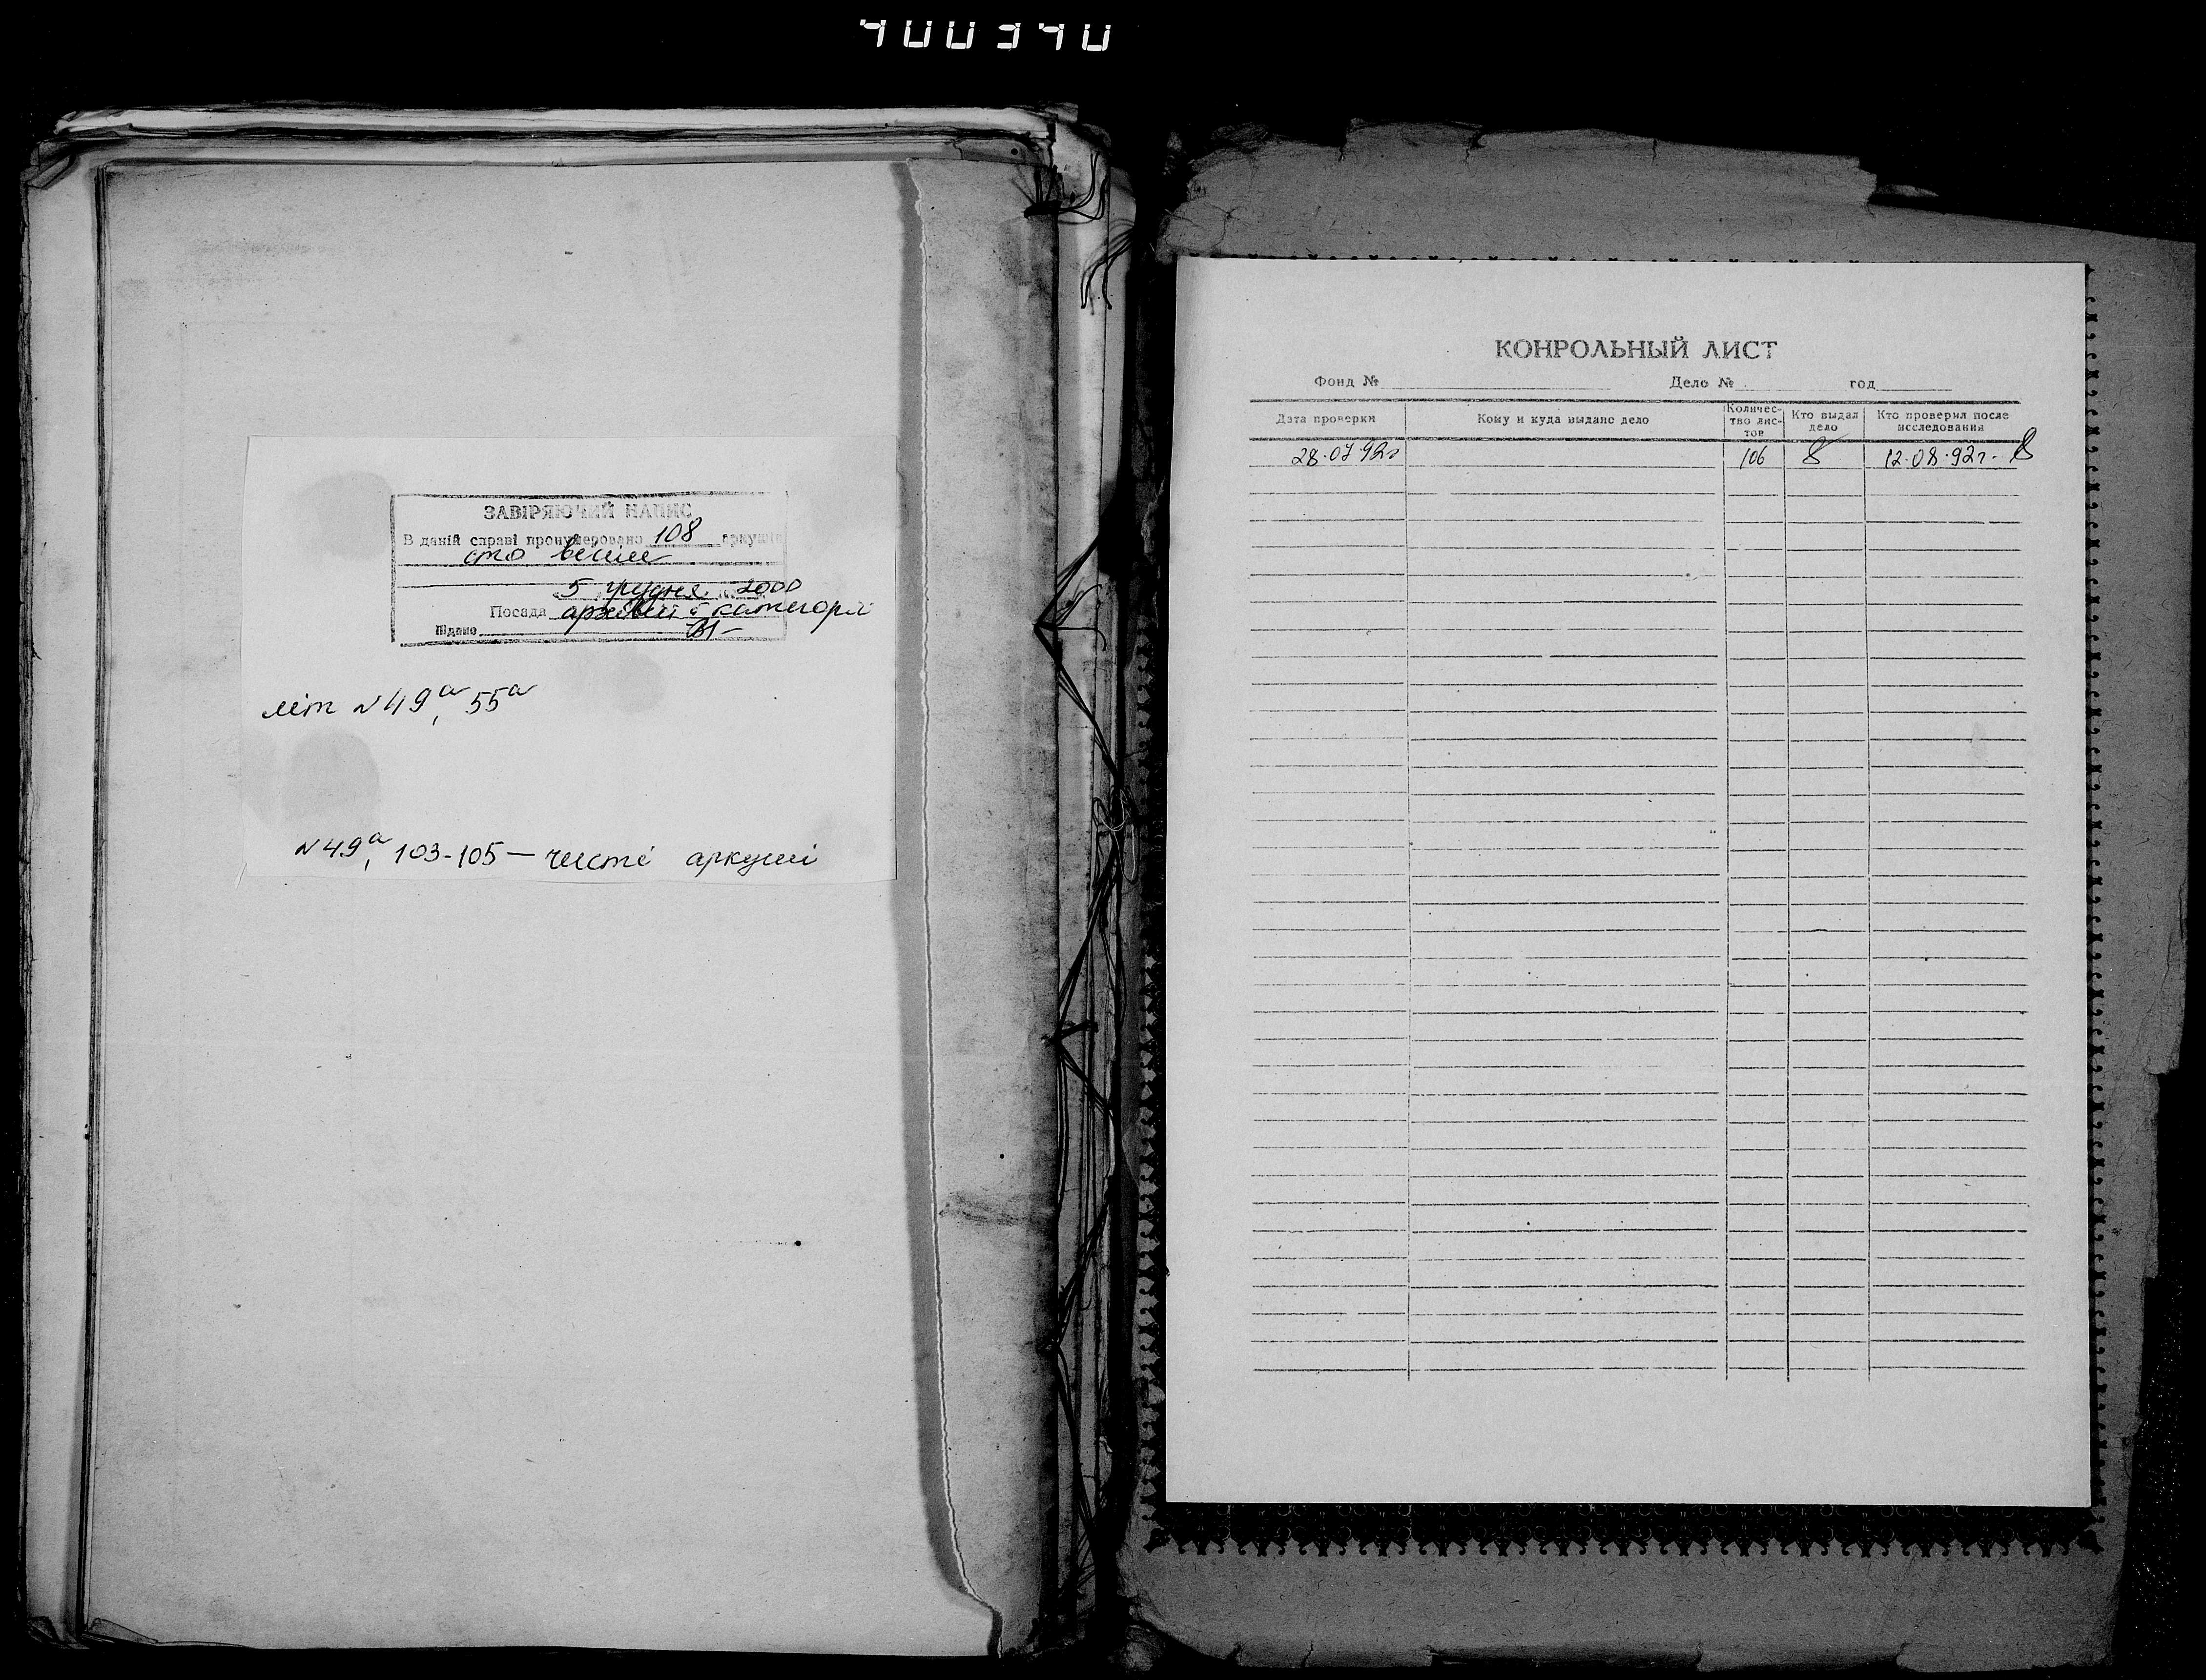 400340
ЗАВІРЯЮЧИЙ НАПИС
В даній справі пронумеровано 108 аркушів
сто вісім
5 грудня 2000
Посада архівіст І категорії
літ №49а, 55а
№49а, 103-105 — чисті аркуші
КОНРОЛЬНЫЙ ЛИСТ
Фонд № Дело № год
Дата проверки Кому и куда выдано дело Количес-тво лис-тов Кто выдал дело Кто проверил после исследования
28.07.92г 106 12.08.92г.